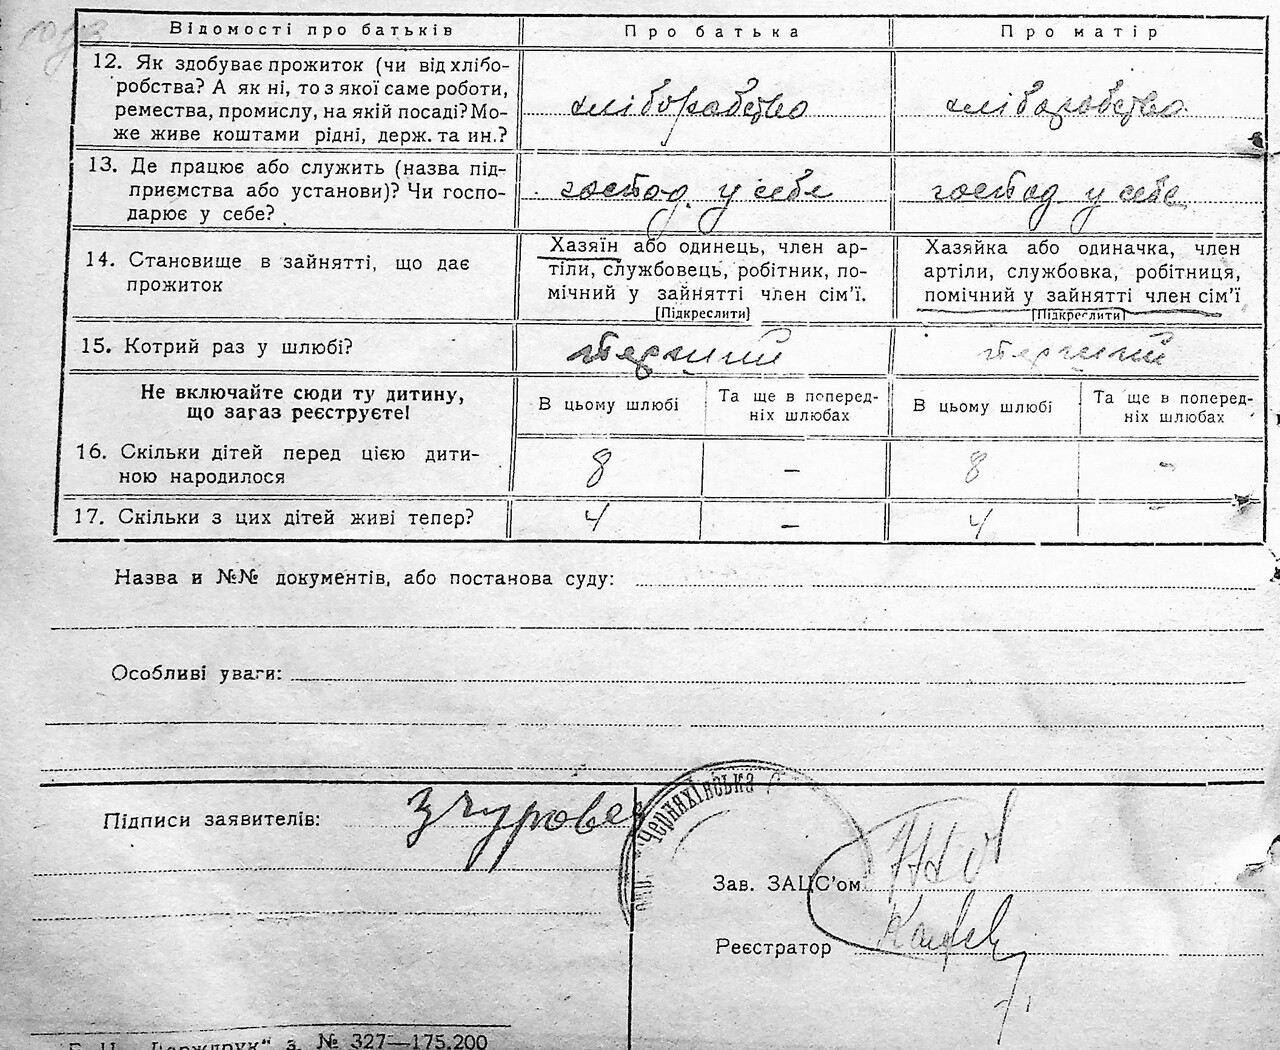 Відомості про батьків Про батька Про матір
12. Як здобуває прожиток (чи від хлібо-
робства? А як ні, то з якої саме роботи,
ремества, промислу, на якій посаді? Мо-
же живе коштами рідні, держ. та ин.?
хліборобство хліборобство
13. Де працює або служить (назва під-
приємства або установи)? Чи госпо-
дарює у себе?
господ. у себе господ у себе
14. Становище в зайнятті, що дає
прожиток
Хазяїн або одинець, член ар-
тіли, службовець, робітник, по-
мічний у зайнятті член сім'ї.
[Підкреслити]
Хазяйка або одиначка, член
артіли, службовка, робітниця,
помічний у зайнятті член сім'ї
[Підкреслити]
15. Котрий раз у шлюбі?
первий первий
Не включайте сюди ту дитину,
що зараз реєструєте!
В цьому шлюбі
Та ще в поперед-
ніх шлюбах
В цьому шлюбі
Та ще в поперед-
ніх шлюбах
16. Скільки дітей перед цією дити-
ною народилося
8 – 8 -
17. Скільки з цих дітей живі тепер?
4 – 4
Назва и №№ документів, або постанова суду:
Особливі уваги:
Підписи заявителів:
Черняхівська
Зав. ЗАЦС'ом
Реєстратор
"Держдрук" з. № 327—175.200